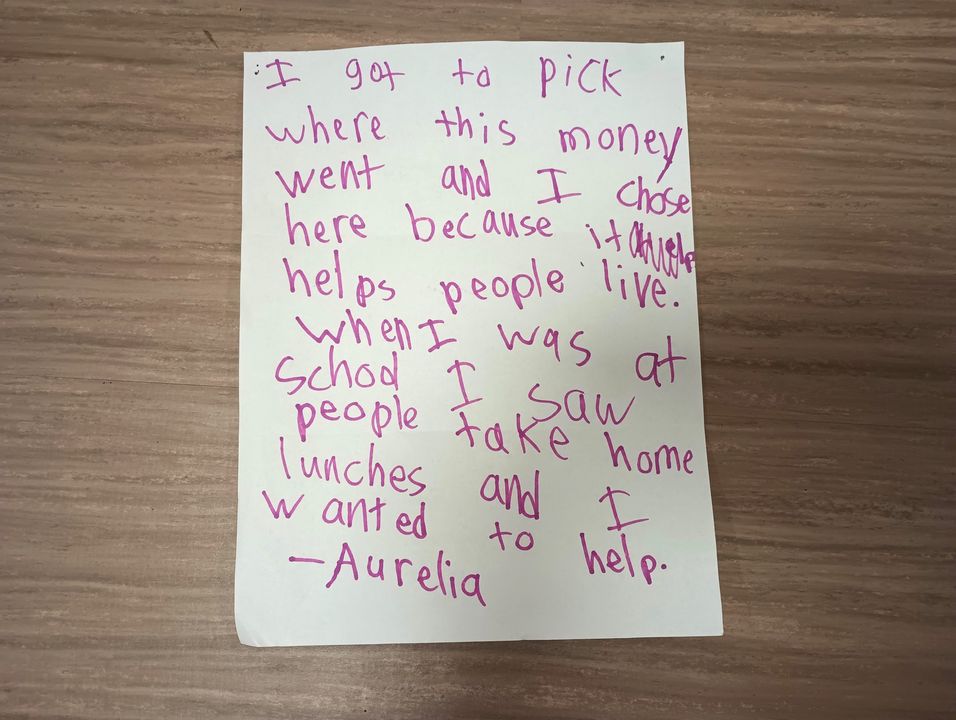 I got to pick
where this money
went and I chose
here because it
helps people live.
when I was at
school I saw
people take home
lunches and I
wanted to help.
-Aurelia